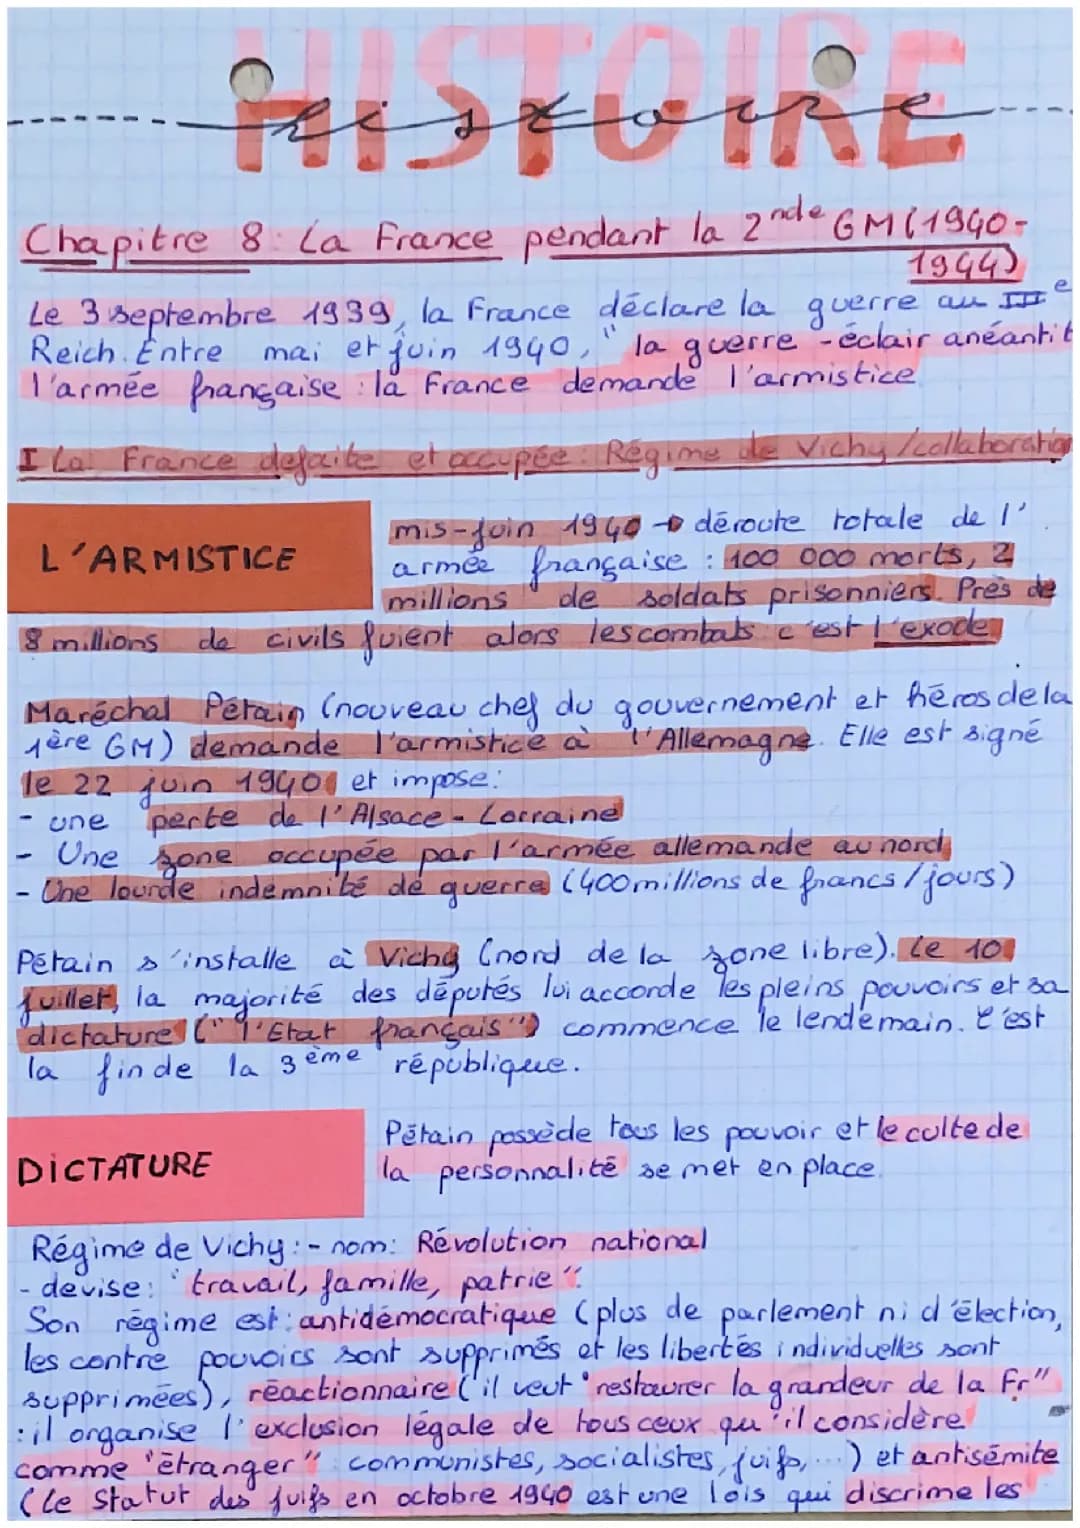 HISTOIRE
histoire
Chapitre 8: La France pendant la 2nde GM (1940-
1944)
Le 3 septembre 1939, la France déclare la guerre au IIIe
Reich. Entre mai et juin 1940, "la guerre-éclair anéantit
l'armée française : la France demande l'armistice
I La France defaite et occupée : Régime de Vichy/collaboration
L'ARMISTICE
mis-juin 1940 → déroute totale de l'
armée française : 100 000 morts, 2
millions de soldats prisonniers. Près de
8 millions de civils fuient alors les combats c'est l'exode
Maréchal Pétain (nouveau chef du gouvernement et héros de la
1ère GM) demande l'armistice à l'Allemagne. Elle est signé
le 22 juin 1940 et impose:
- une perte de l'Alsace-Lorraine
- Une zone occupée par l'armée allemande au nord
- Une lourde indemnité de guerre (400 millions de francs/jours)
Pétain s'installe à Vichy (nord de la zone libre). Le 10
juillet, la majorité des députés lui accorde les pleins pouvoirs et sa
dictature ("l'Etat français") commence le lendemain. C'est
la fin de la 3ème république.
DICTATURE
Pétain possède tous les pouvoir et le culte de
la personnalité se met en place.
Régime de Vichy: - nom: Révolution national
- devise: "travail, famille, patrie".
Son régime est: antidémocratique (plus de parlement ni d'élection,
les contre pouvoirs sont supprimés et les libertés individuelles sont
supprimées), réactionnaire (il veut "restaurer la grandeur de la Fr"
: il organise l'exclusion légale de tous ceux qu'il considère
comme "étranger" communistes, socialistes, juifs, ...) et antisémite
(Le Statut des juifs en octobre 1940 est une lois qui discrime les